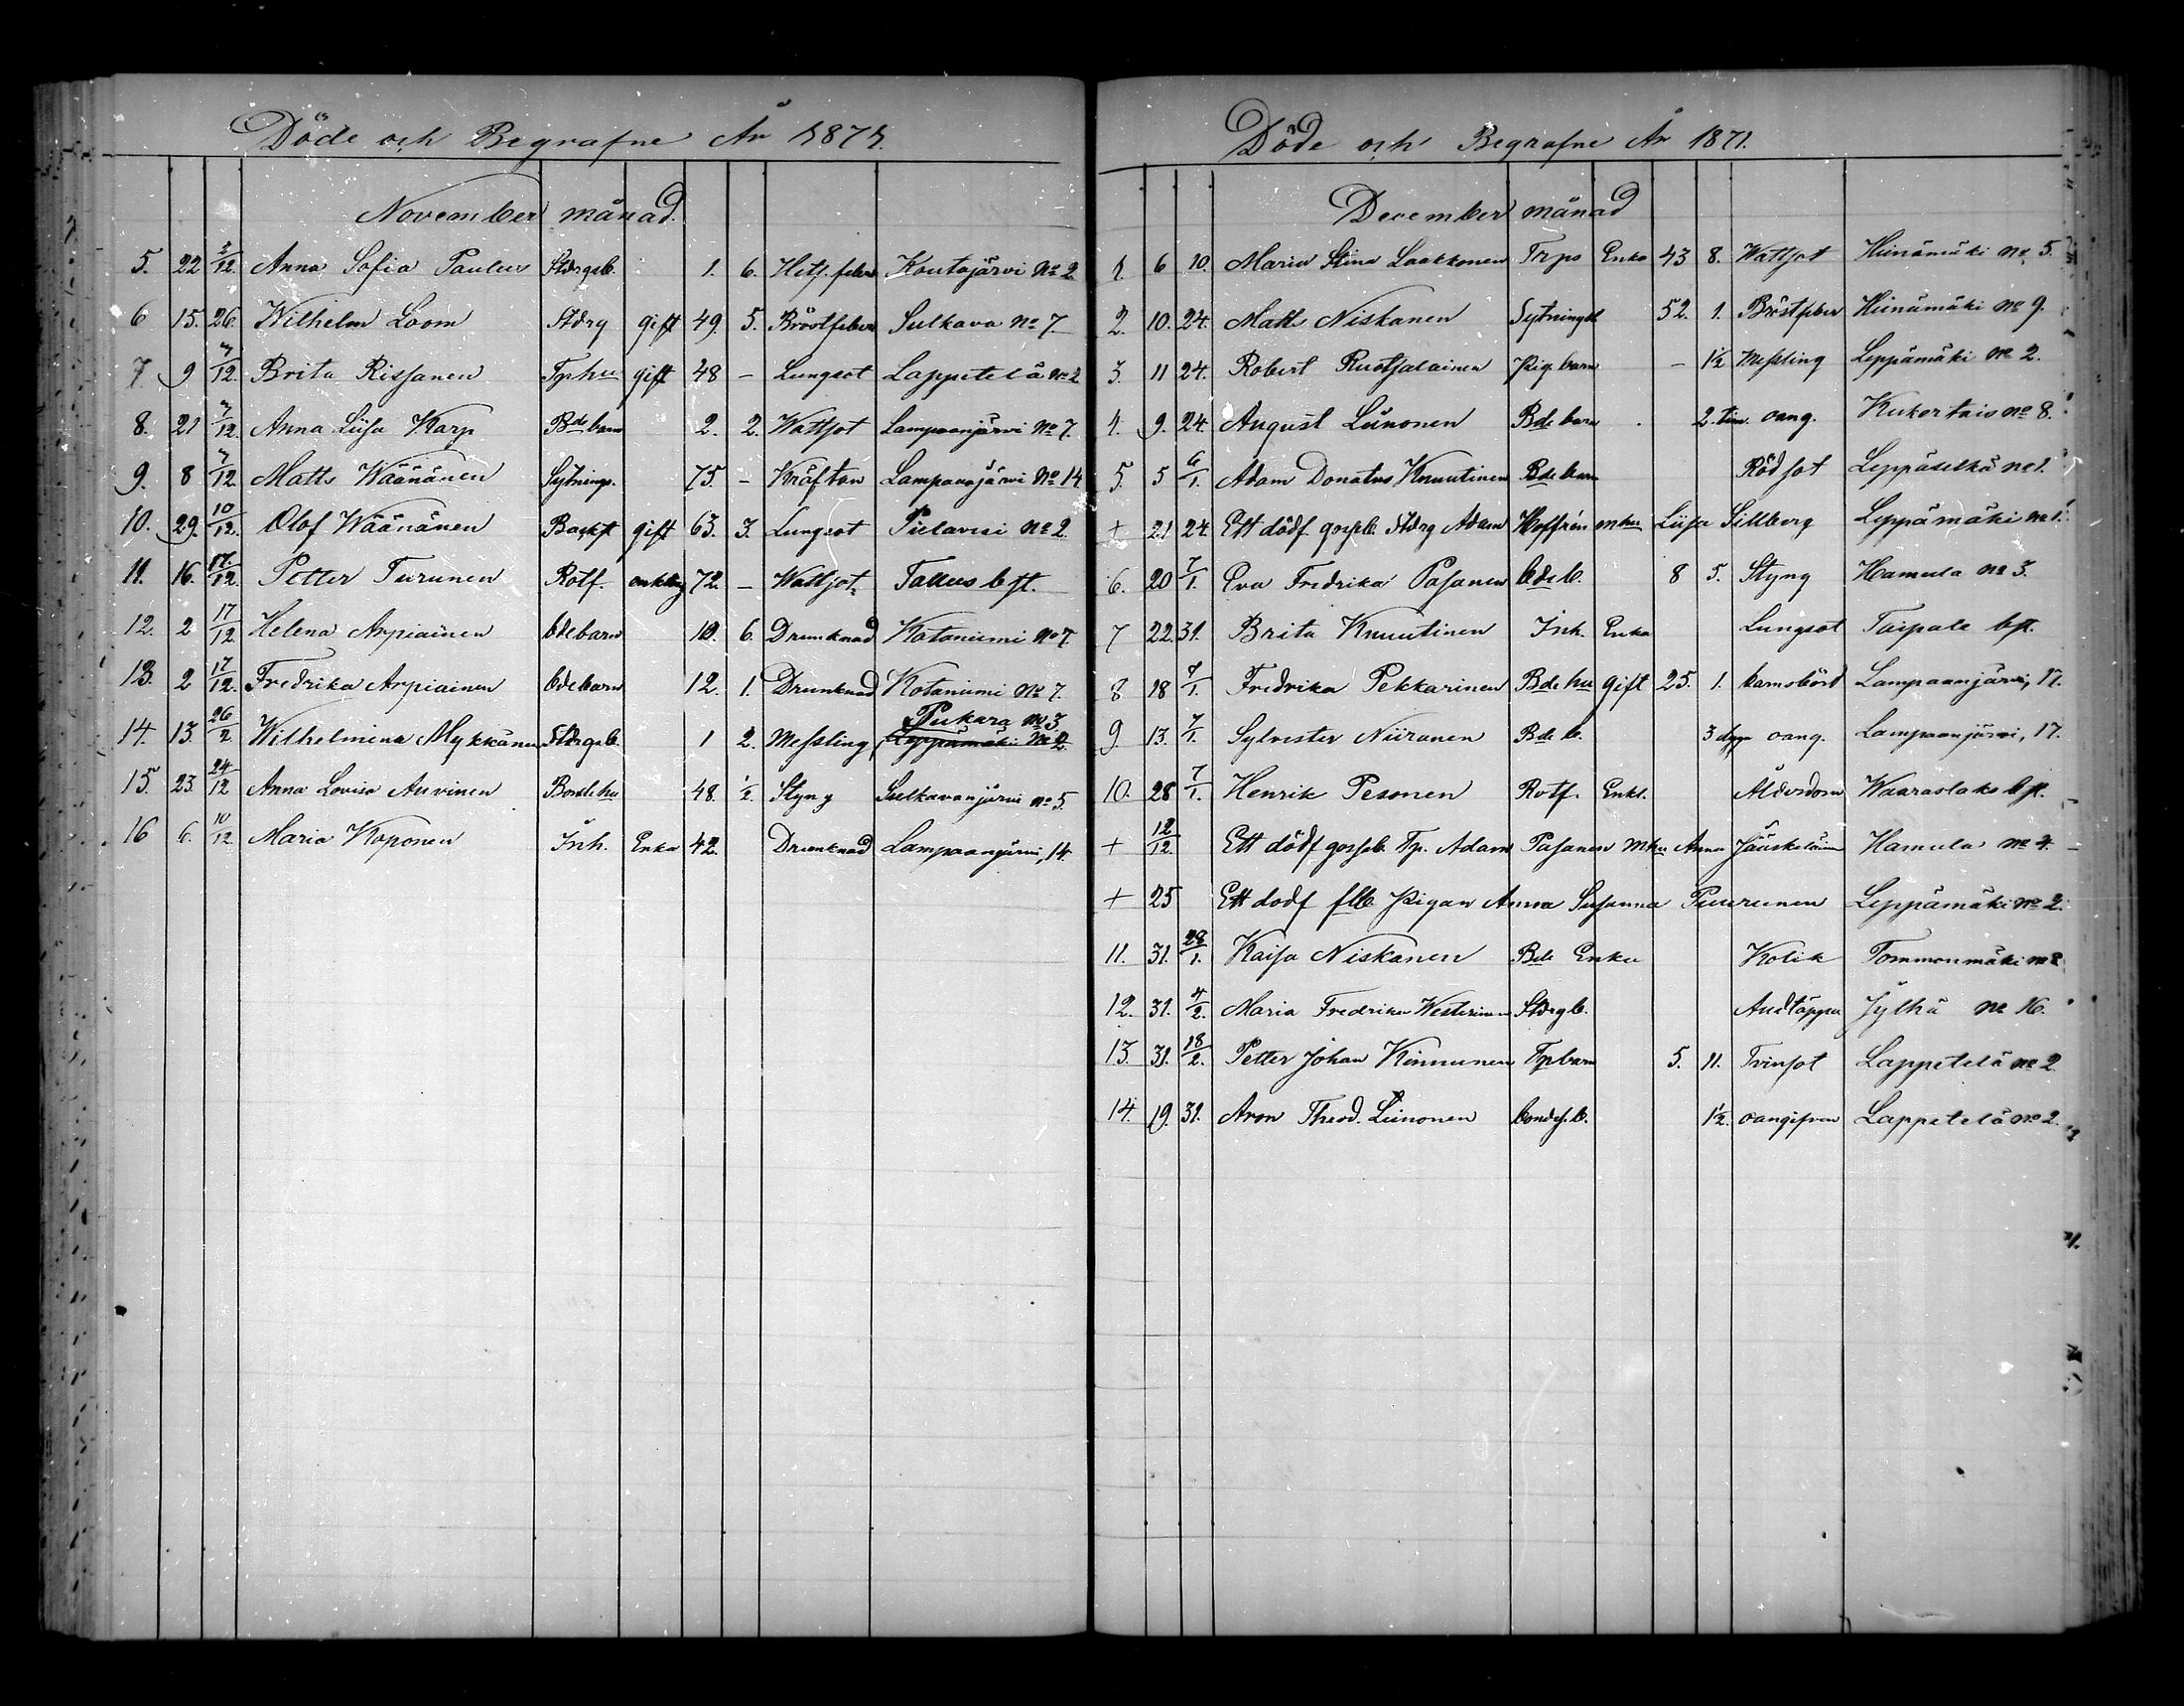 Döde och Begrafne År 1871.
November månad.
5. 22 3/12. Anna Sofia Paulus Stdrgsb. 1. 6. Hets. feber Koutajärvi No 2
6 15. 26. Wilhelm Loom Stdrg gift 49. 5. Bröstfeber Sulkava No 7
7 9 3/12. Brita Rissanen Tphu gift 48 – Lungsot Lappetelä No 2
8. 21 3/12. Anna Liisa Karp Bdebarn 2. 2. Wattsot Lampaanjärvi No 7.
9. 8 3/12 Matts Wäänänen Sytnings. 75. – Kräftan Lampaanjärvi No 14
10. 29. 10/12. Olof Wäänänen Backst gift 63. 3. Lungsot Pielavesi No 2
11. 16. 17/12. Petter Turunen Rotf. enkling 72. – Wattsot Tallus bst.
12. 2 17/12. Helena Arpiainen bdebarn 10. 6. Drunknad Kataniemi No 7.
13. 2 17/12. Fredrika Arpiainen bdebarn 12. 1. Drunknad Kotaniemi No 7.
14. 13. 26/2. Wilhelmina Mykkänen Stdrgsb. 1 2. Messling Pukara No 3 Leppämäki No 2
15. 23. 24/12 Anna Lovisa Auvinen Bondehu 48. 1/2. Styng Sulkavanjärvi No 5.
16 6. 10/12 Maria Koponen Inh. Enka 42. Drunknad Lampaanjärvi, 14.
Döde och Begrafne År 1871.
December månad
1. 6 10. Maria Stina Laakkonen Trps Enka 43 8. Wattsot Heinämäki No 5.
2. 10. 24. Matts Niskanen Sytningsk 52. 1. Bröstfeber Heinämäki No 9.
3. 11 24. Robert Ruotsalainen Pig.barn – 1 1/2 Messling Leppämäki No 2.
4. 9. 24. August Liinonen Bdebarn 2. tim. oang. Kukertais No 8.
5. 5 6/1. Adam Donatus Knuutinen Bdebarn Rödsot Leppäselkä No 1.
+ 21 24. Ett dödf gossb. Stdrg Adam Hoffrén m hu Liisa Sillberg Leppämäki No 1.
6. 20 7/1. Eva Fredrika Pasanen bdeb. 8 5. Styng Hamula No 3.
7 22. 31. Brita Knuutinen Inh. Enka Lungsot Taipale bst.
8 18 7/1. Fredrika Pekkarinen Bdehu gift 25. 1. barnsbörd Lampaanjärvi, 17.
9 13. 7/1. Sylvester Niiranen Bde b. 3 dygn oang. Lampaanjärvi, 17.
10. 28 7/1. Henrik Pesonen Rotf. Enkl. Ålderdom Waaraslaks bst.
+ 12/12. Ett dödf gossb. Tp. Adam Pasanen m hu Anna Jääskeläinen Hamula No 4.
+ 25 Ett dödf flb. Pigan Anna Susanna Puurunen Leppämäki No 2.
11. 31. 28/1. Kaisa Niskanen Bde Enka Kolik Tommonmäki No 2
12. 31. 4/2. Maria Fredrika Westerinen Stdrgb. Andtäppa Jylhä No 16.
13. 31. 18/2. Petter Johan Kinnunen Tpbarn 5. 11. Tvinsot Lappetelä No 2
14. 19. 31. Aron Theod. Liinonen bondes.b. 1 1/2. oangifven Lappetelä No 2.